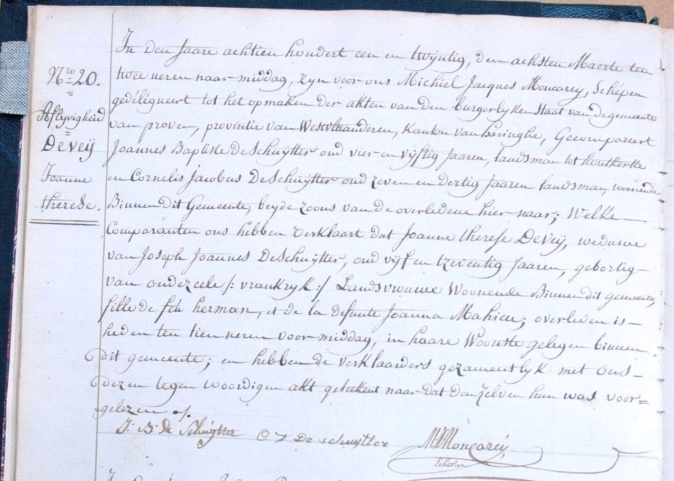 Nro 20.
Aflijvigheid
Deveij
Joanne
therese.
In den Jaare achtien hondert een en twijntig, den achsten Maerte ten
twee uren naar-middag, zyn voor-ons Michiel Jacques Moncarey, Schepen
gedeligueert tot het opmaken der akten van den burgerlyken staat van de gemeente
van proven, provintie van Westvlaanderen, Kanton van haringhe, Gecompareert
Joannes Baptiste DeSchuijtter oud vier en vijftig Jaaren, landsman tot houtkerke
en Cornelis Jacobus DeSchuijtter oud zeven en dertig Jaaren landsman, woonende
Binnen dit Gemeente, beyde zoons van de overledene hier-naar; Welke
Comparanten ons hebben verklaart dat Joanne therese Deveij, weduwe
van Joseph Joannes DeSchuijtter, oud vijf en tzeventig Jaaren, gebortig
van oudezeele /: vrankryk :/ Landsvrouwe Woonende Binnen dit gemeente,
fille de feu herman, et de la defunte Joanna Mahieu; overleden is
heden ten tien uren voor-middag, in haare Woonste gelegen binnen
dit gemeente; en hebben de verklaarders gezamentlyk met ons
dezen tegenwoordigen akt geteekent naar-dat den zelven hun was voor=
gelezen /.
J: B: de Schuytter C J De schuytter MJMoncarey,
Schepen